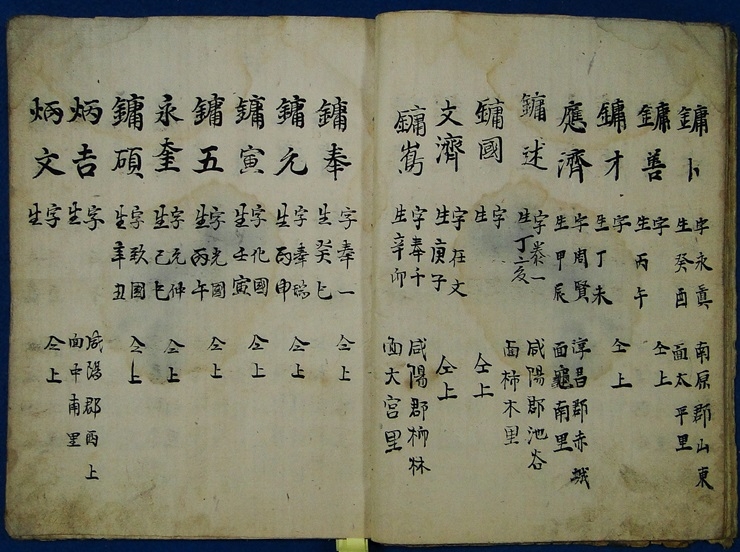 鏞卜 字永眞 生癸酉 南原郡山東面太平里
鏞善 字 生丙午 仝上
鏞才 字 生丁未 仝上
應濟 字周賢 生甲辰 淳昌郡赤城面龜南里
鏞述 字泰一 生丁亥 咸陽郡池谷面柿木里
鏞國 字 生 仝上
文濟 字在文 生庚子 仝上
鏞嵩 字奉千 生辛卯 咸陽郡柳林面大宮里
鏞奉 字奉一 生癸巳 仝上
鏞元 字奉瑞 生丙申 仝上
鏞寅 字化國 生壬寅 仝上
鏞五 字光國 生丙午 仝上
永奎 字元仲 生己巳 仝上
鏞碩 字致國 生辛丑 仝上
炳吉 字 生 咸陽郡西上面中南里
炳文 字 生 仝上